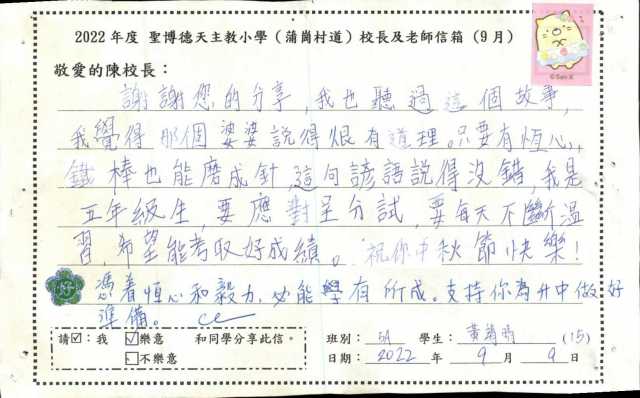 2022 年度 聖博德天主教小學（蒲崗村道）校長及老師信箱（9 月）
敬愛的陳校長：
謝謝您的分享，我也聽過這個故事，
我覺得那個婆婆說得很有道理。只要有恆心，
鐵棒也能磨成針，這句諺語說得沒錯，我是
五年級生，要應對呈分試，要每天不斷溫
習，希望能考取好成績。祝你中秋節快樂！
好 憑着恆心和毅力，必能學有所成。支持你為升中做好
準備。
請☑：我 ☑樂意 和同學分享此信。
□不樂意
班別： 5A 學生： 黃 (15)
日期： 2022 年 9 月 9 日